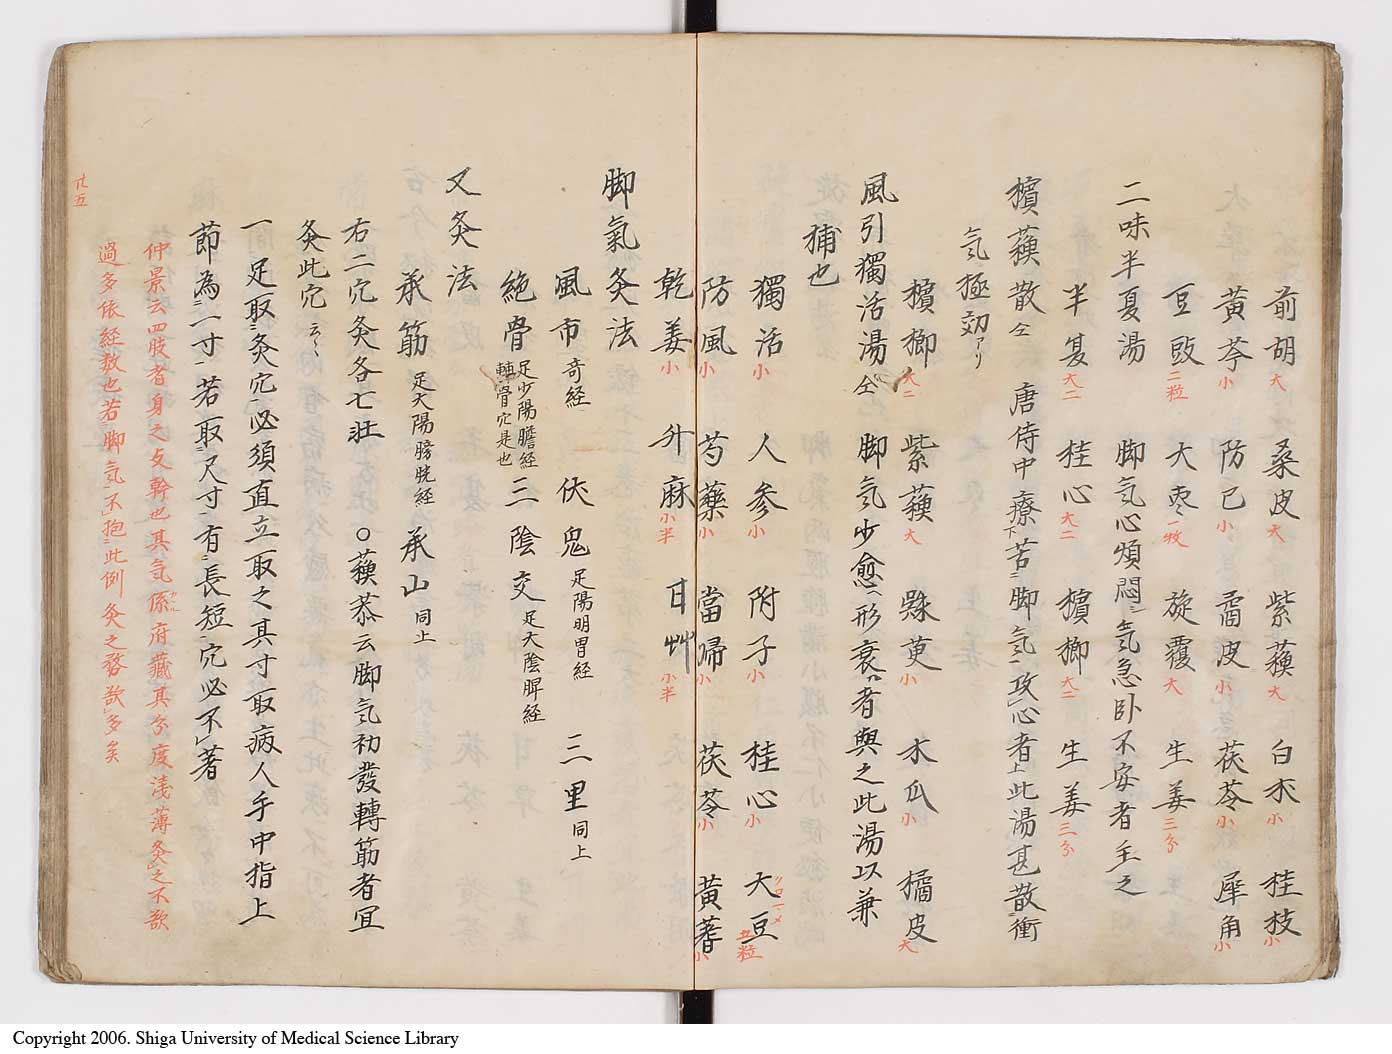 前胡大 桑皮大 紫蘓大 白朮小 桂枝小
黃芩小 防已小 霤皮小 茯苓小 犀角小
豆豉二粒 大枣一牧 旋覆大 生姜三分
二味半夏湯 脚気心煩悶ニ気急卧不安者主之
半夏大二 桂心大二 檳榔大二 生姜三分
檳蘓散仝 唐侍中療下苦ニ脚気一攻心者上此湯甚散ニ衝
気極効アリ
檳榔大二 紫蘓大 呉茰小 木瓜小 橘皮大
風引獨活湯仝 脚気少愈一形衰者與之此湯以兼
補也
獨活小 人参小 附子小 桂心小 大豆五粒
防風小 芍藥小 當帰小 茯苓小 黃蓍小
乾姜小 升麻小半 甘艸小半
脚氣灸法
風市奇経 伏鬼足陽明胃経 三里同上
絶骨足少陽膽経 骨穴是也 三陰交足太陰脾経
又灸法
承筋足太陽膀胱経 承山同上
右二穴灸各七壮 〇蘓恭云脚気初發轉筋者冝
灸此穴云〻
一 足取ニ灸穴一必須直立取之其寸取病人手中指上
節為ニ一寸一若取ニ尺寸一有ニ長短一穴必不著
仲景云四肢者身之支幹也其気係府藏其分度淺薄灸之不欲
過多依経数也若脚気不抱ニ此例灸之務欲多矣
廿五
Copyright 2006. Shiga University of Medical Science Library